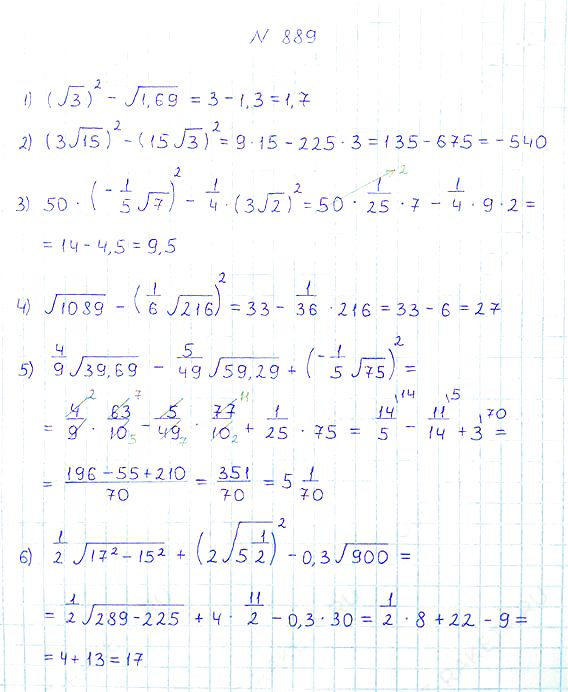 N 889
1) (√3)² - √1,69 = 3 - 1,3 = 1,7
2) (3√15)² - (15√3)² = 9·15 - 225·3 = 135 - 675 = -540
3) 50·(-1/5 √7)² - 1/4·(3√2)² = 50 2·1/25·7 - 1/4·9·2 =
= 14 - 4,5 = 9,5
4) √1089 - (1/6 √216)² = 33 - 1/36·216 = 33 - 6 = 27
5) 4/9 √39,69 - 5/49 √59,29 + (-1/5 √75)² =
= 4 2/9 · 63 7/10 5 - 5/49 7 · 77 11/10 2 + 1/25·75 = 14/5 \14 - 11/14 \5 + 3 \70 =
= (196 - 55 + 210)/70 = 351/70 = 5 1/70
6) 1/2 √(17² - 15²) + (2√(5 1/2))² - 0,3√900 =
= 1/2 √(289 - 225) + 4·11/2 - 0,3·30 = 1/2·8 + 22 - 9 =
= 4 + 13 = 17